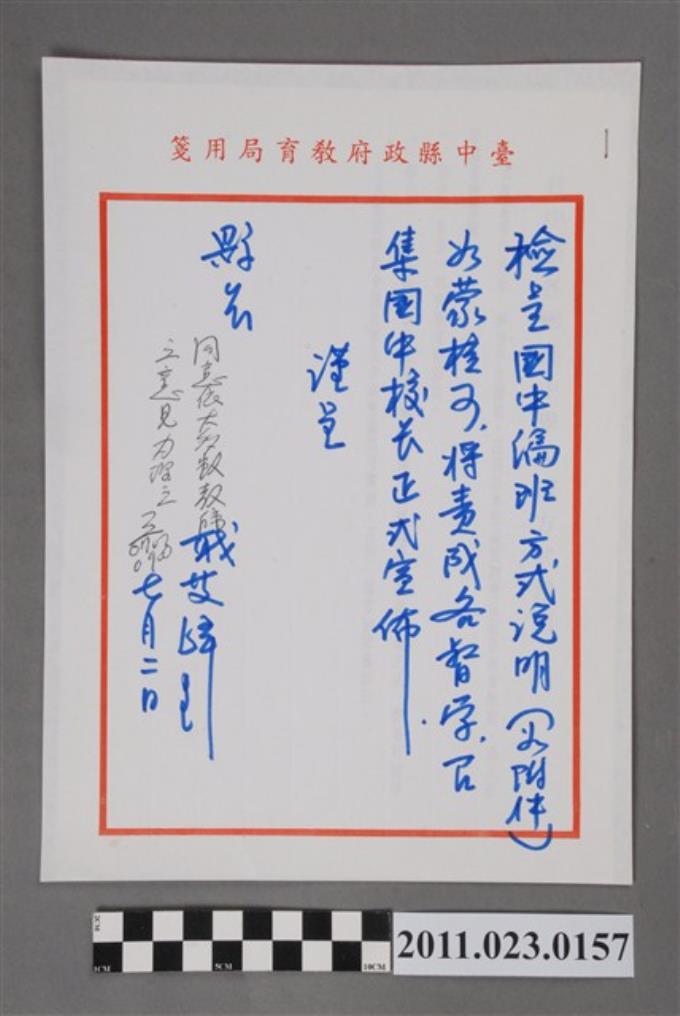 臺中縣政府教育局用箋
檢呈國中編班方式說明(如附件)
如蒙核可,將責成各督學,召
集國中校長正式宣佈
謹呈
縣長
職
七月二日
同意依大多數教師
之意見辦理之
2011.023.0157
2CM
1CM
5CM
10CM